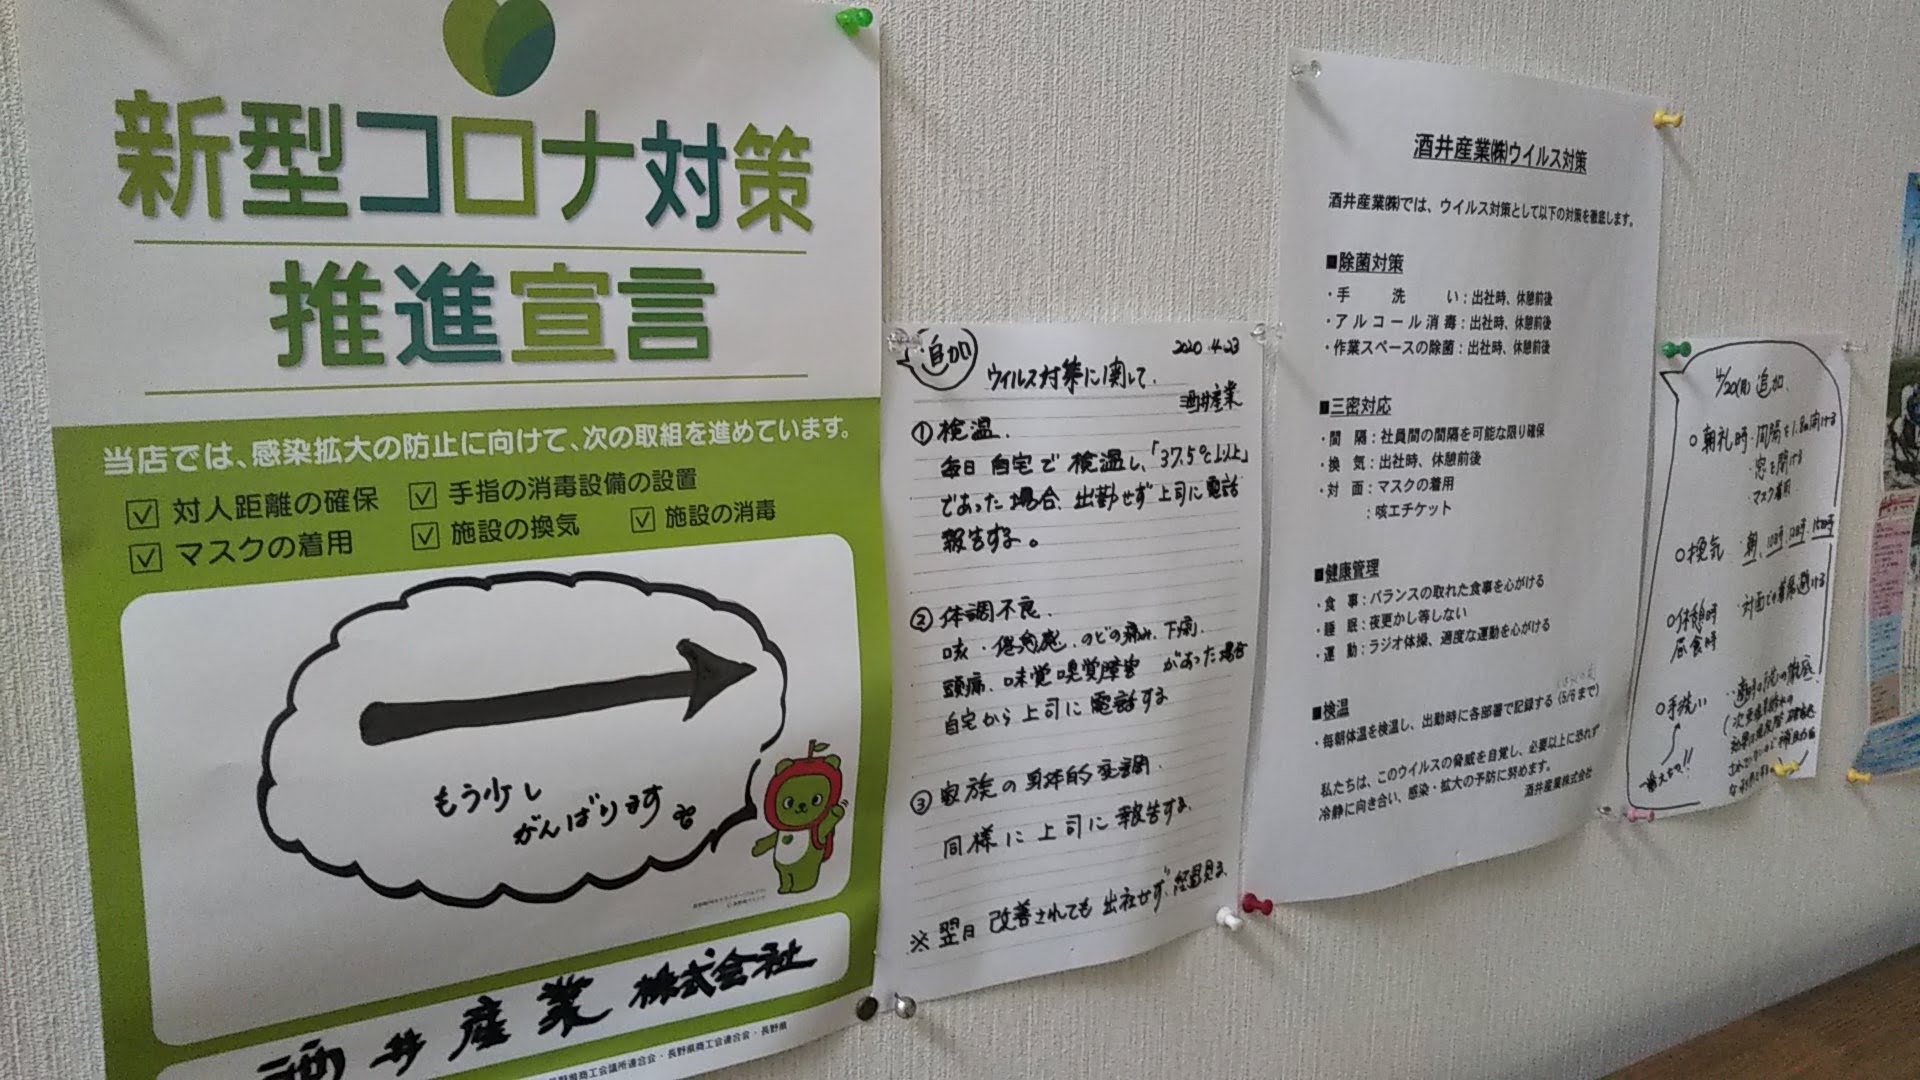 新型コロナ対策
推進宣言
当店では、感染拡大の防止に向けて、次の取組を進めています。
対人距離の確保 手指の消毒設備の設置
マスクの着用 施設の換気 施設の消毒
もう少し
がんばります
酒井産業株式会社
長野県商工会連合会・長野県
追加
2020.4.23
ウイルス対策に関して.
酒井産業
①検温.
毎日 自宅で検温し、「37.5℃以上」
であった場合、出勤せず上司に電話
報告する。
②体調不良.
咳・倦怠感、のどの痛み、下痢、
頭痛、味覚嗅覚障害 があった場合
自宅から上司に電話する
③家族の身体的変調.
同様に上司に報告する.
※翌日改善されても出社せず、経過見る
酒井産業㈱ウイルス対策
酒井産業㈱では、ウイルス対策として以下の対策を徹底します。
■除菌対策
・手洗い：出社時、休憩前後
・アルコール消毒：出社時、休憩前後
・作業スペースの除菌：出社時、休憩前後
■三密対応
・間隔：社員間の間隔を可能な限り確保
・換気：出社時、休憩前後
・対面：マスクの着用
：咳エチケット
■健康管理
・食事：バランスの取れた食事を心がける
・睡眠：夜更かし等しない
・運動：ラジオ体操、適度な運動を心がける
■検温
・毎朝体温を検温し、出勤時に各部署で記録する（5/6まで）
私たちは、このウイルスの脅威を自覚し、必要以上に恐れず
冷静に向き合い、感染・拡大の予防に努めます。
酒井産業株式会社
4/20(月)追加.
○朝礼時・間隔を1.8m開ける
・窓を開ける
・マスク着用
○換気・朝、10時、12時、15時
○休憩時 ・対面での着席避ける
昼食時
○手洗い